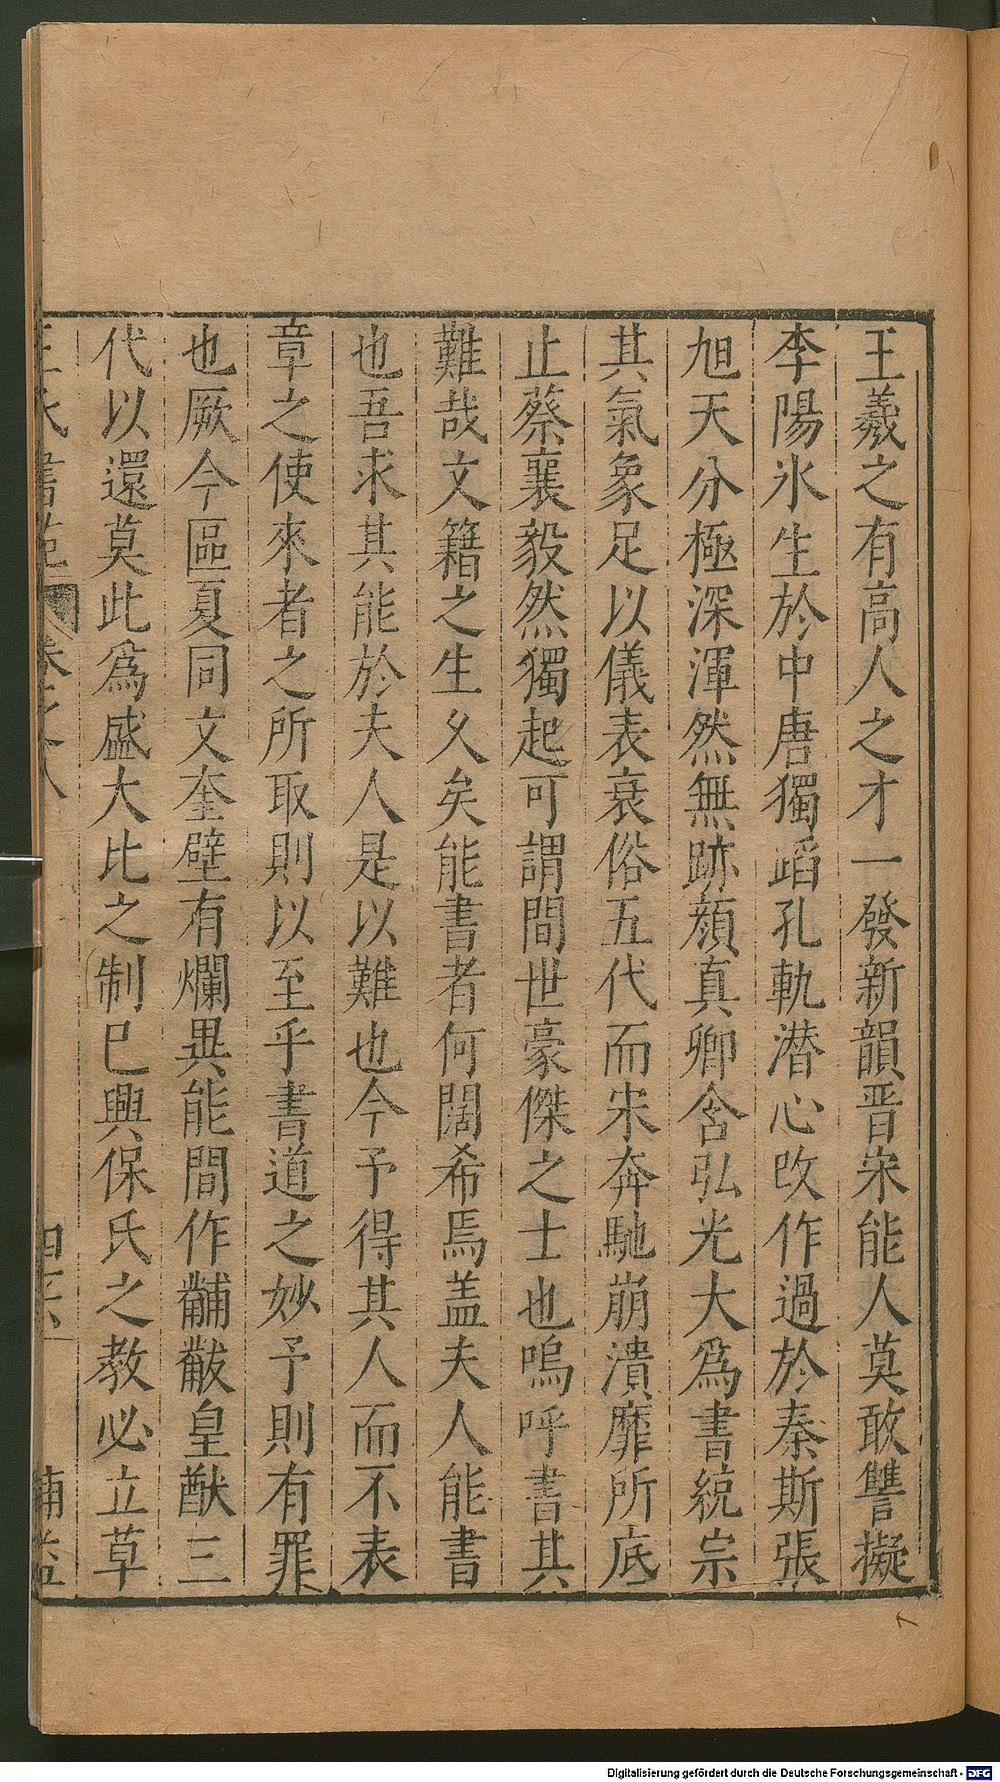 王羲之有高人之才一發新韻晋宋能人莫敢讐擬
李陽氷生於中唐獨蹈孔軌潜心攺作過於秦斯張
旭天分極深渾然無跡顔真卿含弘光大爲書統宗
其氣象足以儀表衰俗五代而宋奔馳崩潰靡所底
止蔡襄毅然獨起可謂間世豪傑之士也嗚呼書其
難哉文籍之生乆矣能書者何闊希焉盖夫人能書
也吾求其能於夫人是以難也今予得其人而不表
章之使來者之所取則以至乎書道之妙予則有罪
也厥今區夏同文奎壁有爛異能間作黼黻皇猷三
代以還莫此爲盛大比之制巳興保氏之教必立草
王氏書苑 卷之八
Digitalisierung gefördert durch die Deutsche Forschungsgemeinschaft - DFG